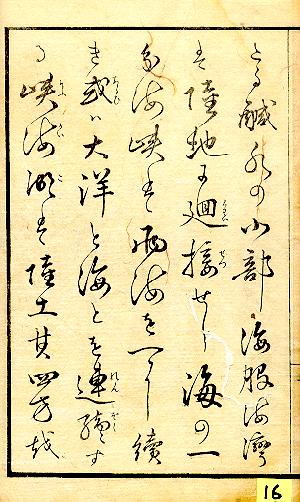 とる鹹水の小部海股海灣
は陸地に廻接せし海の一
海峡は両海を一にし續
き或ハ大洋と海とを連續す
る峡海湖は陸土其四方を
16